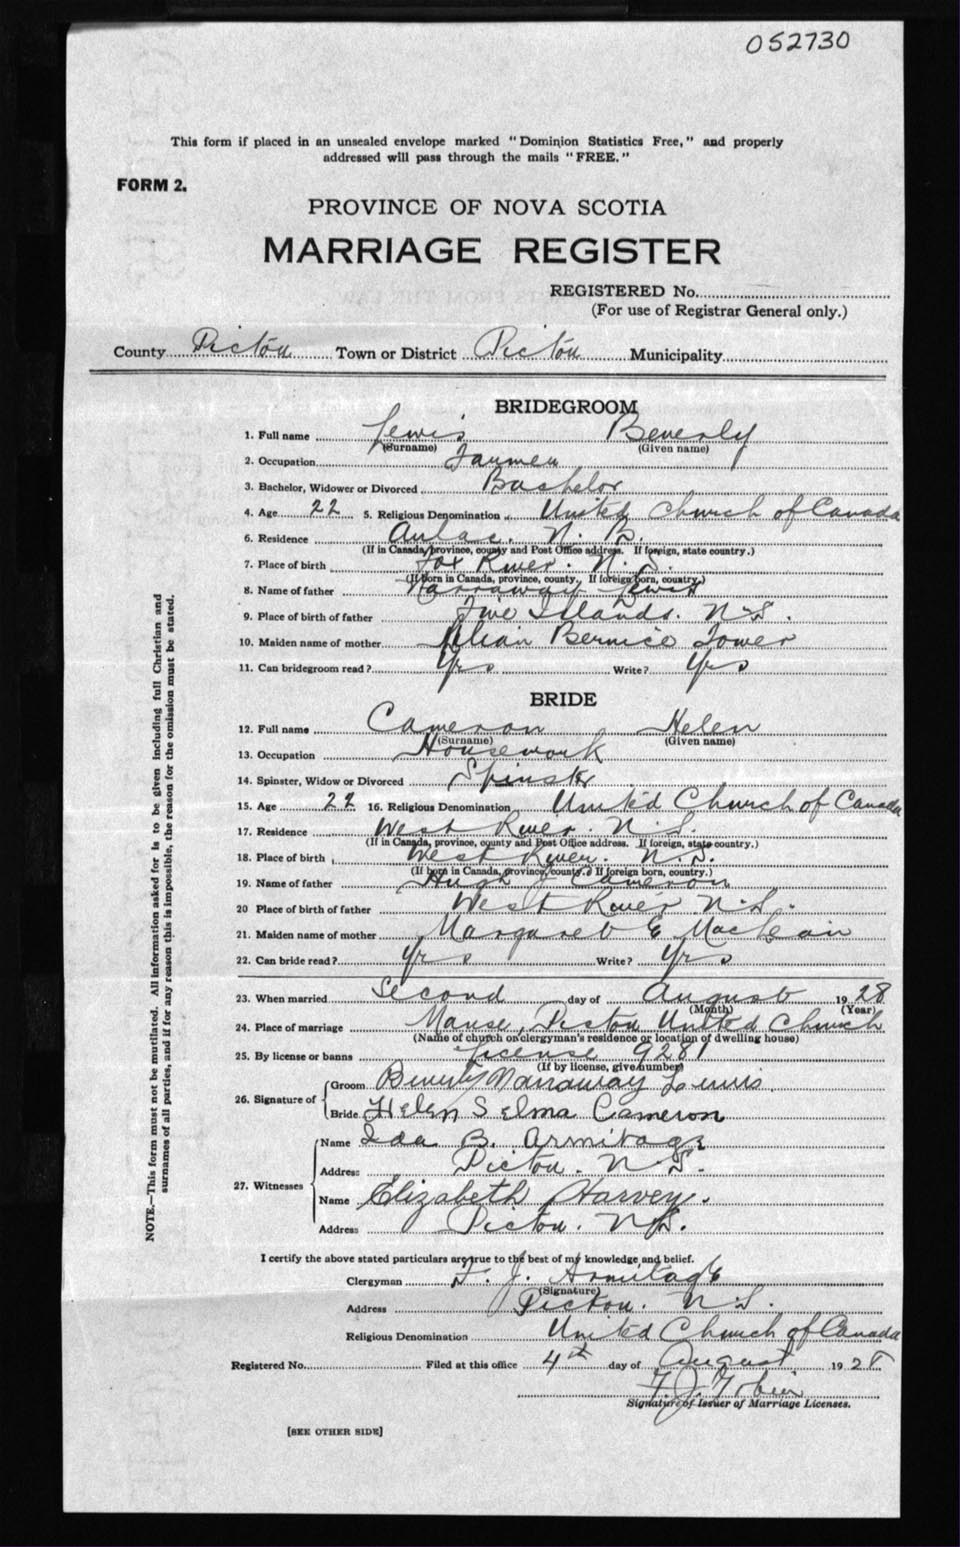 052730
This form if placed in an unsealed envelope marked "Dominion Statistics Free," and properly
addressed will pass through the mails "FREE."
FORM 2.
PROVINCE OF NOVA SCOTIA
MARRIAGE REGISTER
REGISTERED No.
(For use of Registrar General only.)
County Pictou Town or District Pictou Municipality
BRIDEGROOM
1. Full name Lewis Beverly
(Surname) (Given name)
2. Occupation Farmer
3. Bachelor, Widower or Divorced Bachelor
4. Age 22 5. Religious Denomination United Church of Canada
6. Residence Aulac. N. B.
(If in Canada, province, county and Post Office address. If foreign, state country.)
7. Place of birth Fox River. N. S.
(If born in Canada, province, county. If foreign born, country.)
8. Name of father Narraway Lewis
9. Place of birth of father Five Islands. N.S.
10. Maiden name of mother Lilian Bernice Tower
11. Can bridegroom read? Yes Write? Yes
BRIDE
12. Full name Cameron Helen
(Surname) (Given name)
13. Occupation Housework
14. Spinster, Widow or Divorced Spinster
15. Age 22 16. Religious Denomination United Church of Canada
17. Residence West River. N.S.
(If in Canada, province, county and Post Office address. If foreign, state country.)
18. Place of birth West River. N.S.
(If born in Canada, province, county. If foreign born, country.)
19. Name of father Hugh J Cameron
20 Place of birth of father West River N.S.
21. Maiden name of mother Margaret E MacLean
22. Can bride read? Yes Write? Yes
23. When married Second day of August 1928
(Month) (Year)
24. Place of marriage Manse, Pictou United Church
(Name of church or clergyman's residence or location of dwelling house)
25. By license or banns License 9281
(If by license, give number)
26. Signature of Groom Beverly Narraway Lewis
Bride Helen Selma Cameron
27. Witnesses Name Ida B. Armitage
Address Pictou. N.S.
Name Elizabeth Harvey.
Address Pictou. N.S.
I certify the above stated particulars are true to the best of my knowledge and belief.
Clergyman F. J. Armitage
(Signature)
Address Pictou. N.S.
Religious Denomination United Church of Canada
Registered No. Filed at this office 4th day of August 1928
F. J. Tobin
Signature of Issuer of Marriage Licenses.
[SEE OTHER SIDE]
NOTE.—This form must not be mutilated. All information asked for is to be given including full Christian and
surnames of all parties, and if for any reason this is impossible, the reason for the omission must be stated.